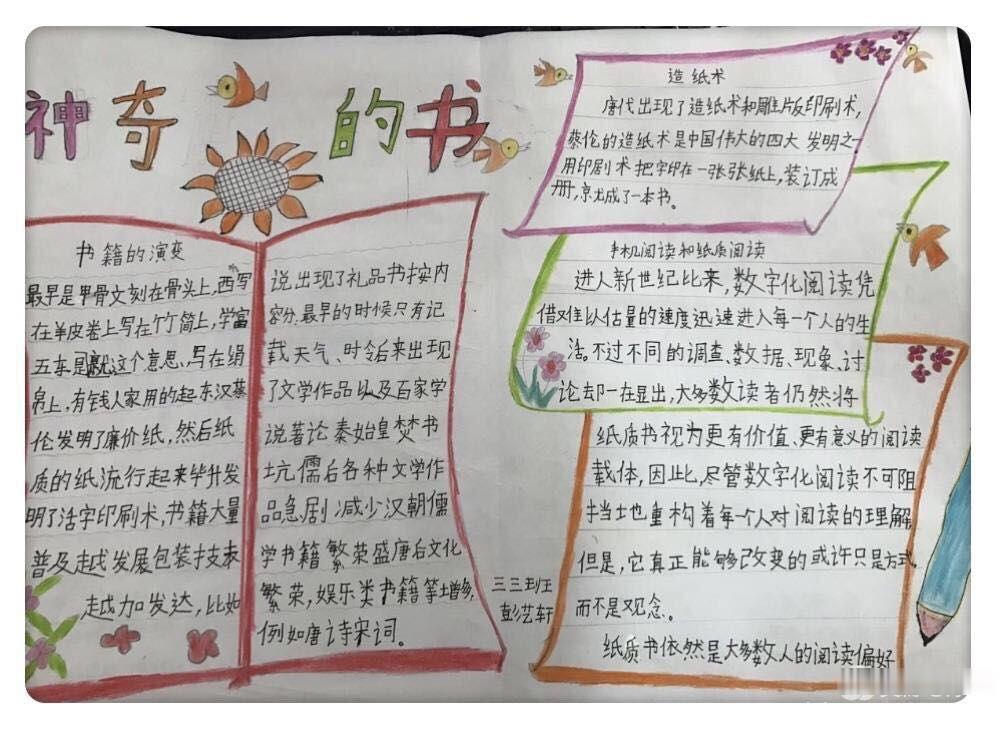 神奇的书
书籍的演变
最早是甲骨文刻在骨头上,西写
在羊皮卷上写在竹简上,学富
五车是就这个意思、写在绢
帛上,有钱人家用的起东汉蔡
伦发明了廉价纸,然后纸
质的纸流行起来毕升发
明了活字印刷术,书籍大量
普及越发展包装技术
越加发达,比如
说出现了礼品书按内
容分.最早的时候只有记
载天气、时令后来出现
了文学作品以及百家学
说著论秦始皇焚书
坑儒后各种文学作
品急剧减少汉朝儒
学书籍繁荣盛唐后文化
繁荣,娱乐类书籍等增多,
例如唐诗宋词。
三三班
彭艺轩
造纸术
唐代出现了造纸术和雕版印刷术,
蔡伦的造纸术是中国伟大的四大发明之一
用印刷术把字印在一张张纸上,装订成
册,就成了一本书。
手机阅读和纸质阅读
进人新世纪比来,数字化阅读凭
借难以估量的速度迅速进入每一个人的生
活。不过不同的调查、数据、现象、讨
论却一在显出,大多数读者仍然将
纸质书视为更有价值、更有意义的阅读
载体,因此,尽管数字化阅读不可阻
挡地重构着每个人对阅读的理解
但是,它真正能够改变的或许只是方式
而不是观念。
纸质书依然是大多数人的阅读偏好